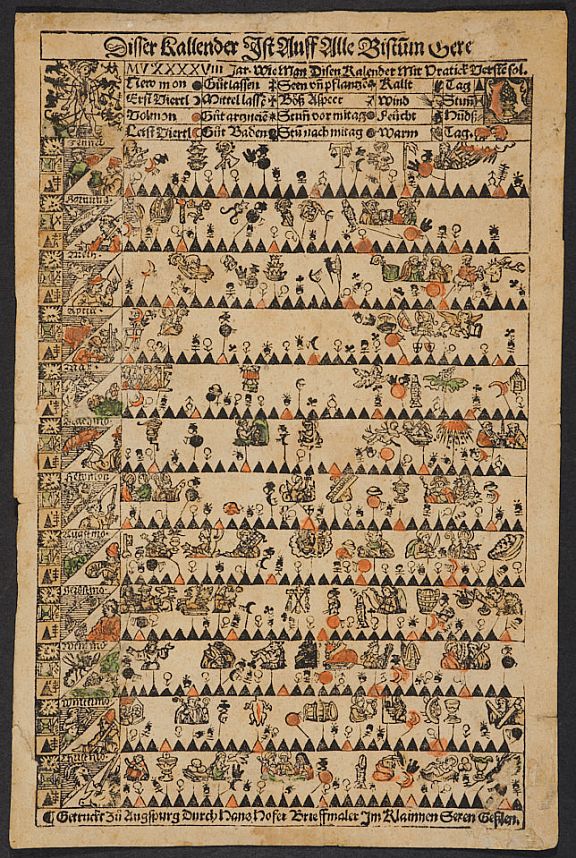 Disser Kallender Ist Auff Alle Bistum Gere
MVᶜXXXXVIII Jar. Wie Man Disen Kalender Mit Pratick Verste sol.
New mon Güt lassen Seen vñ pflantze Kallt Tag
Erst Viertl Mittel lassē Böß Aspect Wind Stun
Volmon Güt artzneiē Stun vor mitag Feücht
Letst Viertl Güt Baden Stū nach mitag Warm Tag
Jenner
Hornung
April
May
Brachmo
Heumon
Augstmo
Weinmo
Wintmo
Getruckt Zü Augspurg Durch Hans Hofer Brieffmaler Im Klainnen Seren Geßlen.